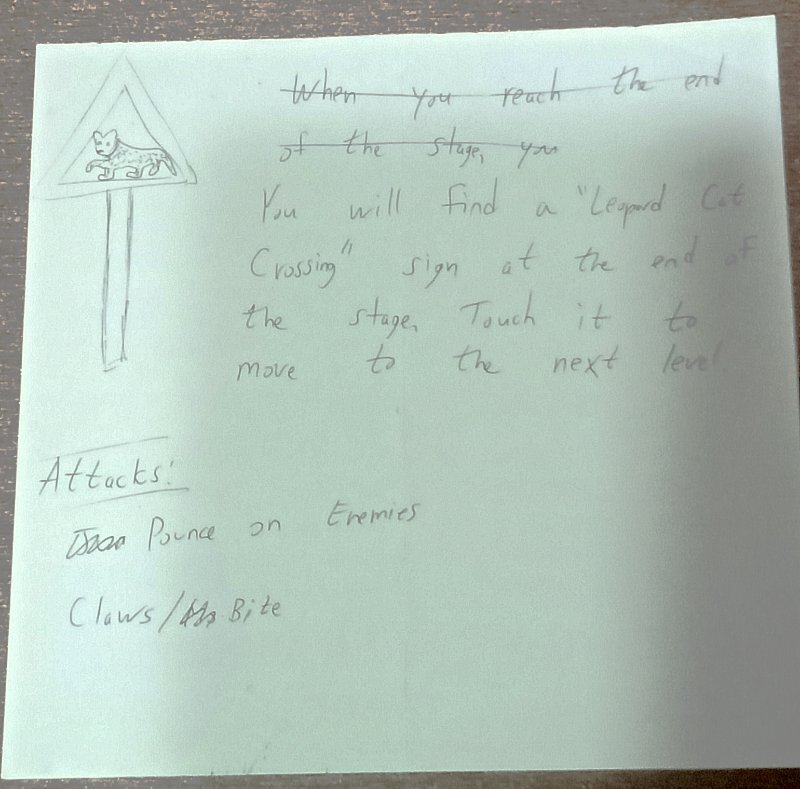 When you reach the end
of the stage, you
You will find a "Leopard Cat
Crossing" sign at the end of
the stage. Touch it to
move to the next level
Attacks:
Pounce on Enemies
Claws/ Bite